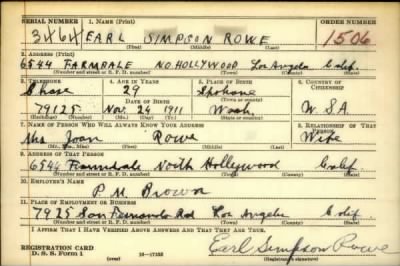 SERIAL NUMBER 1. NAME (Print) ORDER NUMBER
EARL SIMPSON ROWE 1506
(First) (Middle) (Last)
2. ADDRESS (Print)
6544 FARMDALE NO. HOLLYWOOD Los Angeles Calif.
(Number and street or R. F. D. number) (Town) (County) (State)
3. TELEPHONE 4. AGE IN YEARS 5. PLACE OF BIRTH 6. COUNTRY OF CITIZENSHIP
29 Spokane
DATE OF BIRTH (Town or county)
79125 Nov. 24 1911 Wash U.S.A.
(Exchange) (Number) (Mo.) (Day) (Yr.) (State or country)
7. NAME OF PERSON WHO WILL ALWAYS KNOW YOUR ADDRESS 8. RELATIONSHIP OF THAT PERSON
Mrs Joan Rowe Wife
(Mr., Mrs., Miss) (First) (Middle) (Last)
9. ADDRESS OF THAT PERSON
6544 Farmdale North Hollywood Calif.
(Number and street or R. F. D. number) (Town) (County) (State)
10. EMPLOYER'S NAME
P. M. Brown
11. PLACE OF EMPLOYMENT OR BUSINESS
7925 San Fernando Rd Los Angeles Calif.
(Number and street or R. F. D. number) (Town) (County) (State)
I AFFIRM THAT I HAVE VERIFIED ABOVE ANSWERS AND THAT THEY ARE TRUE.
REGISTRATION CARD
D. S. S. Form 1 (over) 16—17105 Earl Simpson Rowe
(Registrant's signature)